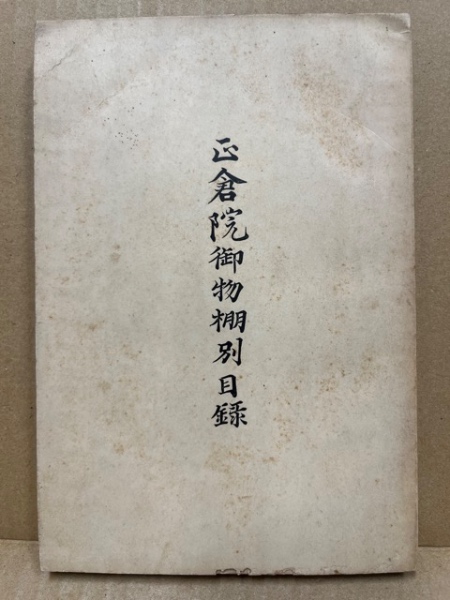 正倉院御物棚別目録